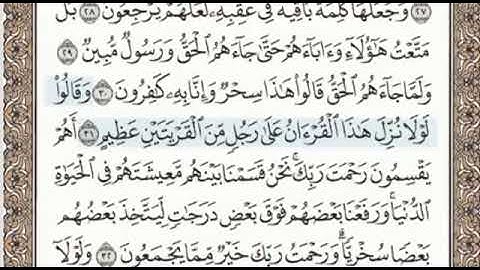 وَجَعَلَهَا كَلِمَةَۢ بَاقِيَةٗ فِي عَقِبِهِۦ لَعَلَّهُمۡ يَرۡجِعُونَ ٢٨ بَلۡ
مَتَّعۡتُ هَٰٓؤُلَآءِ وَءَابَآءَهُمۡ حَتَّىٰ جَآءَهُمُ ٱلۡحَقُّ وَرَسُولٞ مُّبِينٞ ٢٩
وَلَمَّا جَآءَهُمُ ٱلۡحَقُّ قَالُواْ هَٰذَا سِحۡرٞ وَإِنَّا بِهِۦ كَٰفِرُونَ ٣٠ وَقَالُواْ
لَوۡلَا نُزِّلَ هَٰذَا ٱلۡقُرۡءَانُ عَلَىٰ رَجُلٖ مِّنَ ٱلۡقَرۡيَتَيۡنِ عَظِيمٍ ٣١ أَهُمۡ
يَقۡسِمُونَ رَحۡمَتَ رَبِّكَۚ نَحۡنُ قَسَمۡنَا بَيۡنَهُم مَّعِيشَتَهُمۡ فِي ٱلۡحَيَوٰةِ
ٱلدُّنۡيَاۚ وَرَفَعۡنَا بَعۡضَهُمۡ فَوۡقَ بَعۡضٖ دَرَجَٰتٖ لِّيَتَّخِذَ بَعۡضُهُم
بَعۡضٗا سُخۡرِيّٗاۗ وَرَحۡمَتُ رَبِّكَ خَيۡرٞ مِّمَّا يَجۡمَعُونَ ٣٢ وَلَوۡلَآ